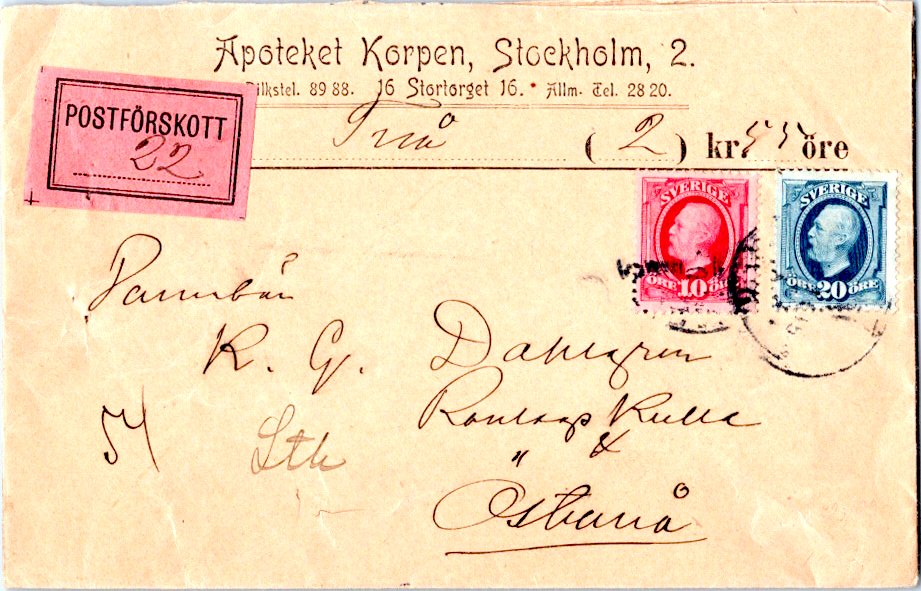 Apoteket Korpen, Stockholm, 2.
Rikstel. 89 88. 16 Stortorget 16. * Allm. Tel. 28 20.
POSTFÖRSKOTT
22
Två ( 2 ) kr 55 öre
SVERIGE
ÖRE 10 ÖRE
SVERIGE
ÖRE 20 ÖRE
K. G. Dahlgren
Kulla
Sth
" &
Österå